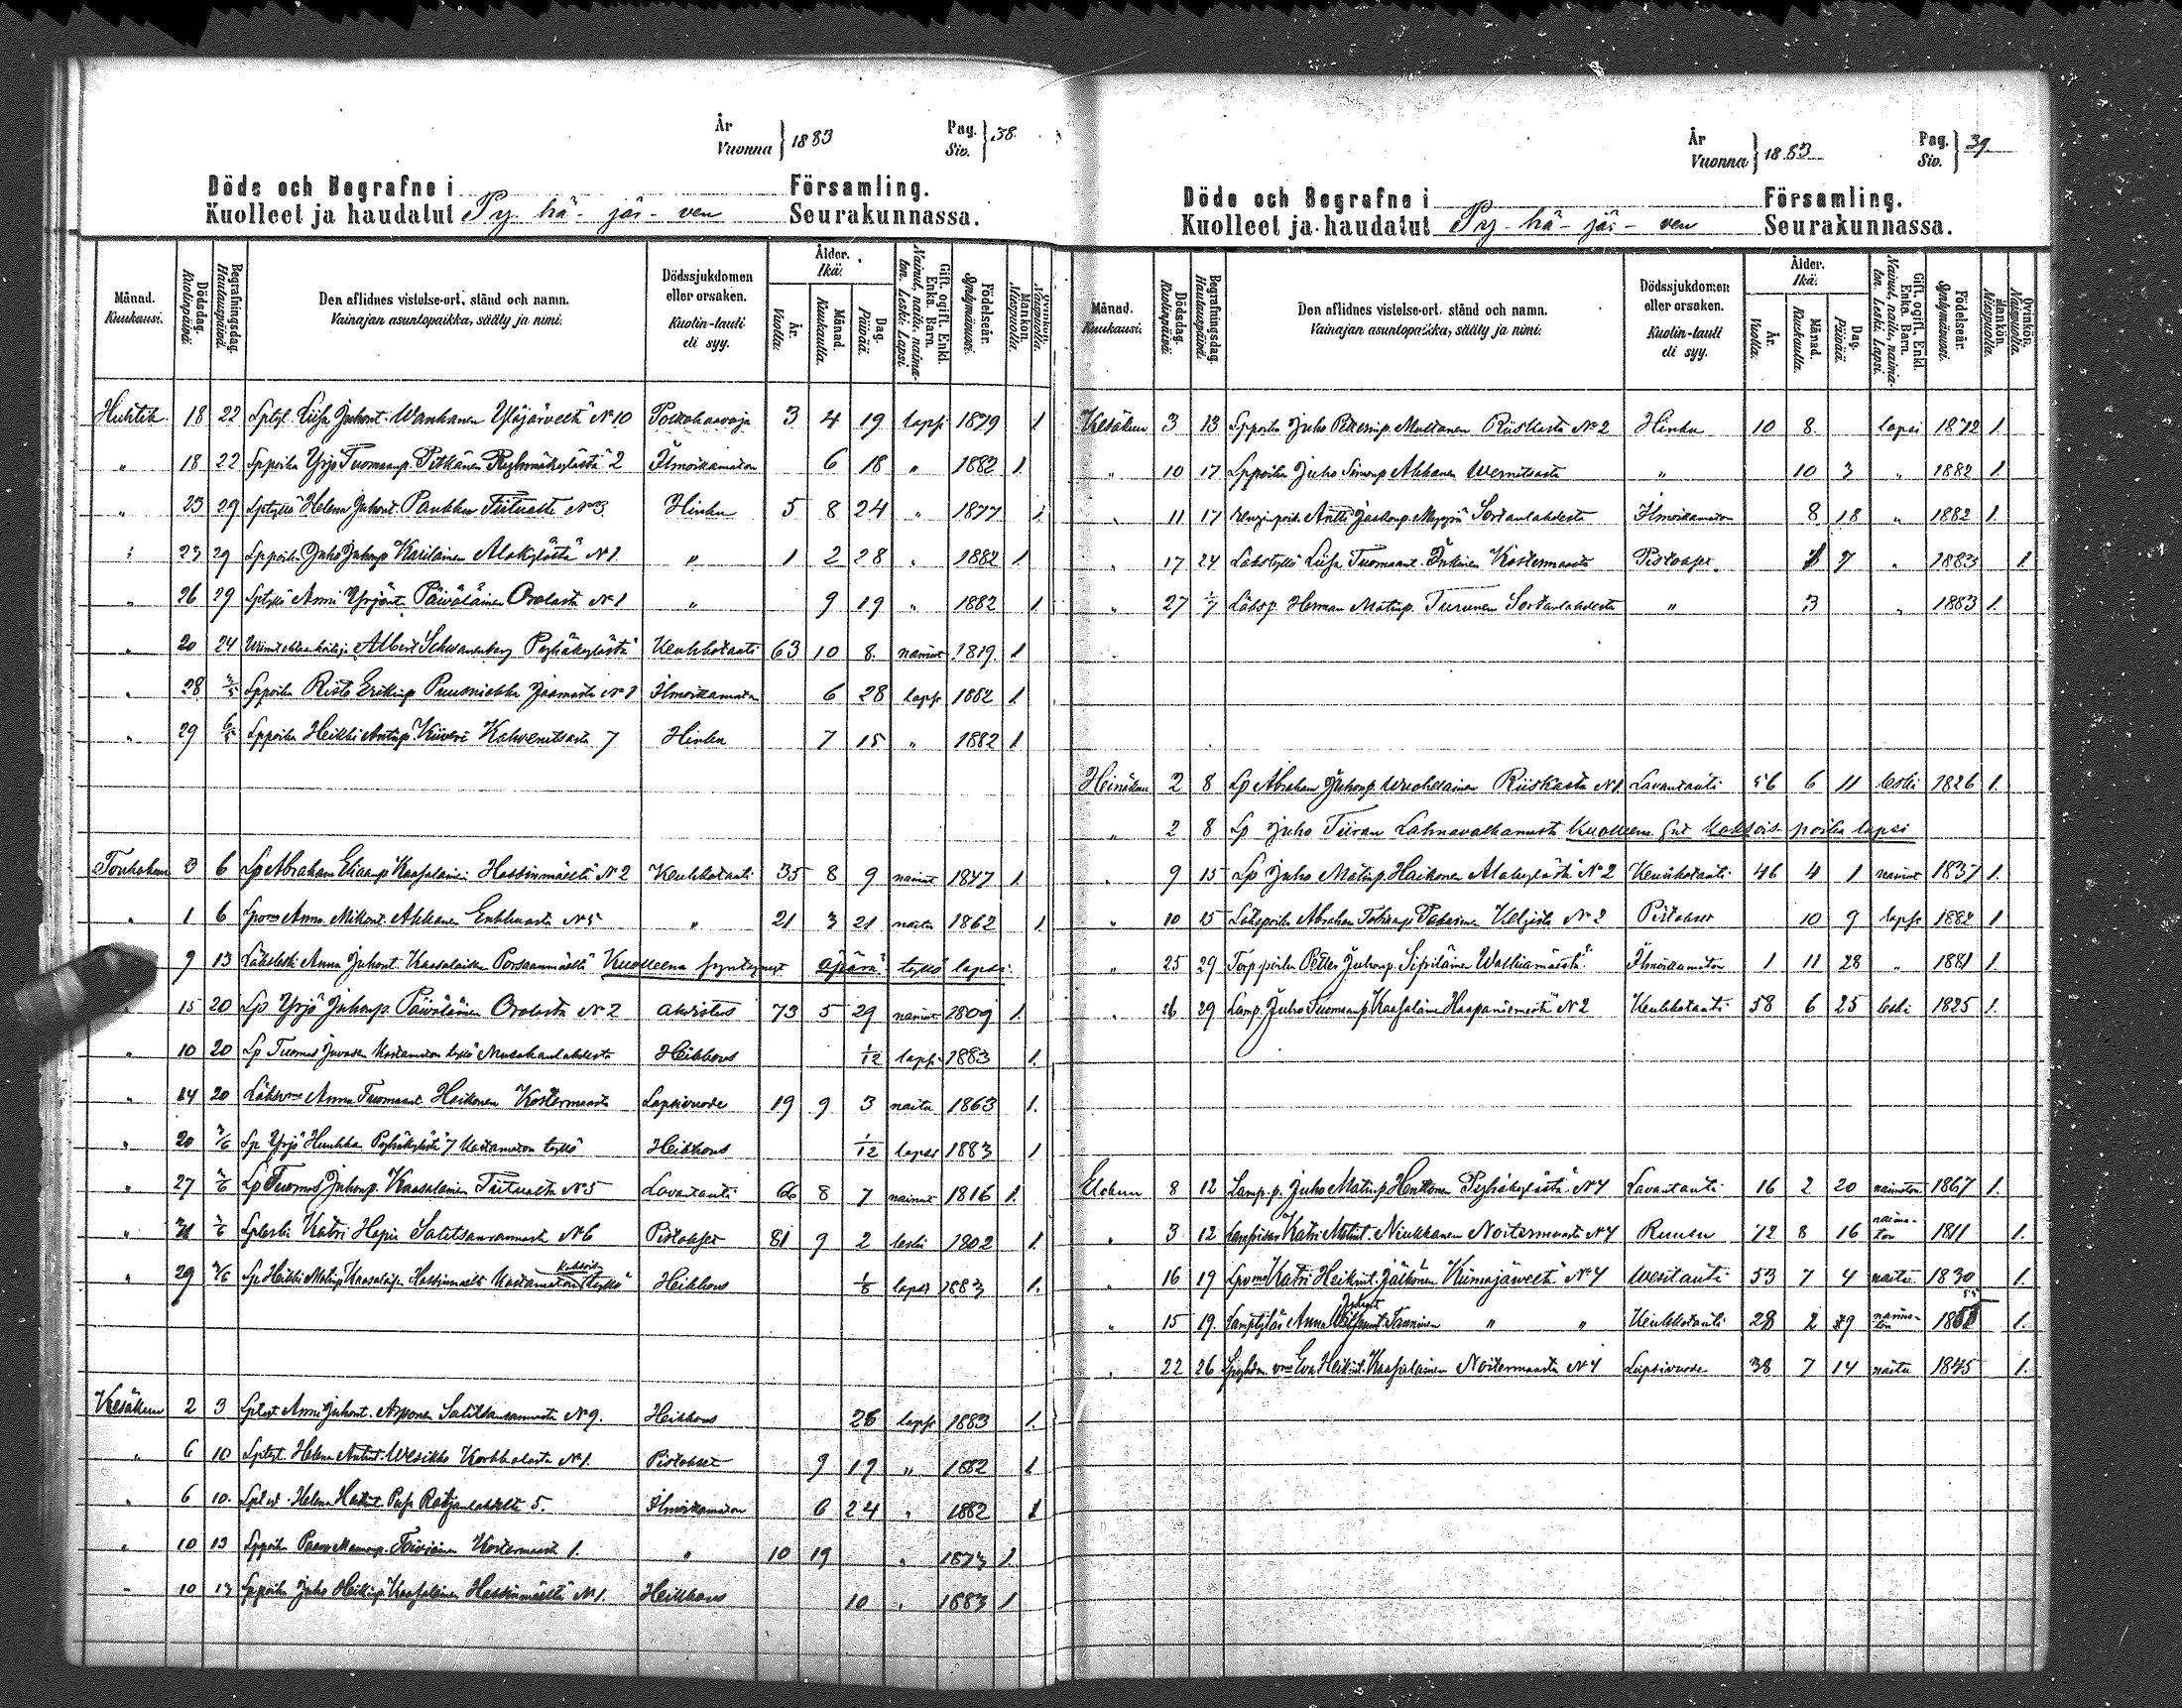 År
Vuonna } 1883
Pag.
Siv. } 38.
Döde och Begrafne i Församling.
Kuolleet ja haudatut Py-hä-jär-ven Seurakunnassa.
Månad. Kuukausi.
Dödsdag. Kuolinpäivä.
Begrafningsdag. Hautauspäivä.
Den aflidnes vistelse-ort, stånd och namn. Vainajan asuntopaikka, sääty ja nimi.
Dödssjukdomen eller orsaken. Kuolin-tauti eli syy.
Ålder. Ikä.
År. Vuotta.
Månad. Kuukautta.
Dag. Päivää.
Gift, ogift. Enkl. Enka. Barn. Nainut, naitu, naimaton. Leski. Lapsi.
Födelseår. Syntymävuosi.
Mankön. Miespuolta.
Qvinkön. Naispuolta.
Huhtik. 18 22 Juhont. Wanhanen Yläjärveltä No 10 3 4 19 lapsi 1879 1
" 18 22 Lp poika Yrjö Tuomaanp. Pitkänen 2 Ilmoittamaton 6 18 " 1882 1.
" 23 29 Lp tyttö Helena Juhont. Paukku No 3. Hinku 5 8 24 " 1877 1.
" 23 29 Lp poika Juho Juhonp. Karilainen Alakylästä No 1. " 1 2 28 " 1882 1
" 26 29 Lp tyttö Anni Yrjönt. Päiväläinen Orolasta No 1 " 9 19 " 1882 1.
" 20 24 Albert Schwanenberg Pyhäkylästä Keuhkotauti 63 10 8. nainut 1819. 1
" 28 2/5 Lp poika Risto Erikinp. Puusniekka No 1 Ilmoittamaton 6 28 lapsi 1882 1.
" 29 6/5 Lp poika Heikki Antinp. Kiiveri Kahvenitsasta 7 Hinku 7 15 " 1882 1
Toukokuu 3 6 Lp Abraham Eliaanp. Kaasalainen Hassinmäeltä No 2 Keuhkotauti 35 8 9 nainut 1847 1.
" 1 6 Anna Mikont. Ahkanen Enkkuasta No 5 " 21 3 21 naitu 1862 1.
" 9 13 Anna Juhont. Kaasalaisen Porsaanmäeltä Kuolleena syntynyt äpärä tyttö lapsi.
" 15 20 Lp Yrjö Juhonp. Päiväläinen Orolasta No 2 ahdistus 73 5 29 nainut 1809 1.
" 10 20 Lp Tuomas Juvosen kastamaton tyttö Heikkous 1/12 lapsi 1883 1.
" 14 20 Anna Tuomaant. Heikonen Kostermaasta Lapsivuode 19 9 3 naitu 1863 1.
" 20 3/6 Lp Yrjö Huuhka Pyhäkylästä 7 kastamaton tyttö Heikkous 1/12 lapsi 1883 1
" 27 3/6 Lp Tuomas Juhonp. Kaasalainen No 5 Lavantauti 66 8 7 nainut 1816 1.
" 31 3/6 Lp leski Katri Hapia Salitsanrannasta No 6 Pistokset 81 9 2 leski 1802 1.
" 29 3/6 Lp Heikki Matinp. Kaasalaisen Hassinmäeltä kastamaton kaksois tyttö Heikkous 1/6 lapsi 1883 1.
Kesäkuu 2 3 Anni Juhont. Arponen Salitsanrannasta No 9. Heikkous 26 lapsi 1883 1.
" 6 10 Helena Antint. Wesikko No 1. Pistokset 9 19 " 1882 1
" 6 10. Helena 5. Ilmoittamaton 6 24 " 1882 1
" 10 13 Lp poika Paavo Toiviainen Kostermaasta 1. " 10 19 " 1873 1.
" 10 13 Lp poika Juho Heikinp. Kaasalainen Hassinmäeltä No 1. Heikkous 10 " 1883 1
År
Vuonna } 1883
Pag.
Siv. } 39.
Döde och Begrafne i Församling.
Kuolleet ja haudatut Py-hä-jär-ven Seurakunnassa.
Månad. Kuukausi.
Dödsdag. Kuolinpäivä.
Begrafningsdag. Hautauspäivä.
Den aflidnes vistelse-ort, stånd och namn. Vainajan asuntopaikka, sääty ja nimi.
Dödssjukdomen eller orsaken. Kuolin-tauti eli syy.
Ålder. Ikä.
År. Vuotta.
Månad. Kuukautta.
Dag. Päivää.
Gift, ogift. Enkl. Enka. Barn. Nainut, naitu, naimaton. Leski. Lapsi.
Födelseår. Syntymävuosi.
Mankön. Miespuolta.
Qvinkön. Naispuolta.
Kesäkuu 3 13 Lp poika Juho Multanen Riiskasta No 2 Hinku 10 8 lapsi 1872 1.
" 10 17 Lp poika Juho Simonp. Ahkanen Wernitsasta " 10 3 " 1882 1.
" 11 17 Antti Jaakonp. Myyryä Sortanlahdesta Ilmoittamaton 8 18 " 1882 1.
" 17 24 Liisa Tuomaant. Inkinen Kostermaasta Pistokset. 7 " 1883 1
" 27 1/7 Herman Matinp. Turunen Sortanlahdesta " 3 " 1883 1.
Heinäkuu 2 8 Lp Abraham Juhonp. Wuohelainen Riiskasta No 1. Lavantauti 56 6 11 leski 1826 1.
" 2 8 Lp Juho Tiiran Lahnavalkamasta kuolleena synt kaksois poika lapsi
" 9 15 Lp Juho Matinp. Haikonen Alakylästä No 2 Keuhkotauti 46 4 1 nainut 1837 1.
" 10 15 Abraham No 2 Pistokset 10 9 lapsi 1882 1
" 25 29 Torp. poika Petter Juhonp. Sipiläinen Walkiamäestä Ilmoittamaton 1 11 28 " 1881 1.
" 26 29 Lamp. Juho Tuomaanp. Kaasalainen Haapaniemestä No 2 Keuhkotauti 58 6 25 leski 1825 1.
Elokuu 8 12 Lamp. p. Juho Matinp. Henttonen Pyhäkylästä No 4 Lavantauti 16 2 20 naimaton 1867 1.
" 3 12 Katri Matint. Niukkanen Noitermaasta No 4 Ruusu 72 8 16 naimaton 1811 1.
" 16 19 Katri Heikint. Jälkönen Kiimajärveltä No 4 Wesitauti 53 7 4 naitu 1830 1.
" 15 19. Anna Tanninen " " Keuhkotauti 28 2 29 naimaton 1855 1.
" 22 26 Eva Heikint. Kaasalainen Noitermaasta No 4 Lapsivuode 38 7 14 naitu 1845 1.